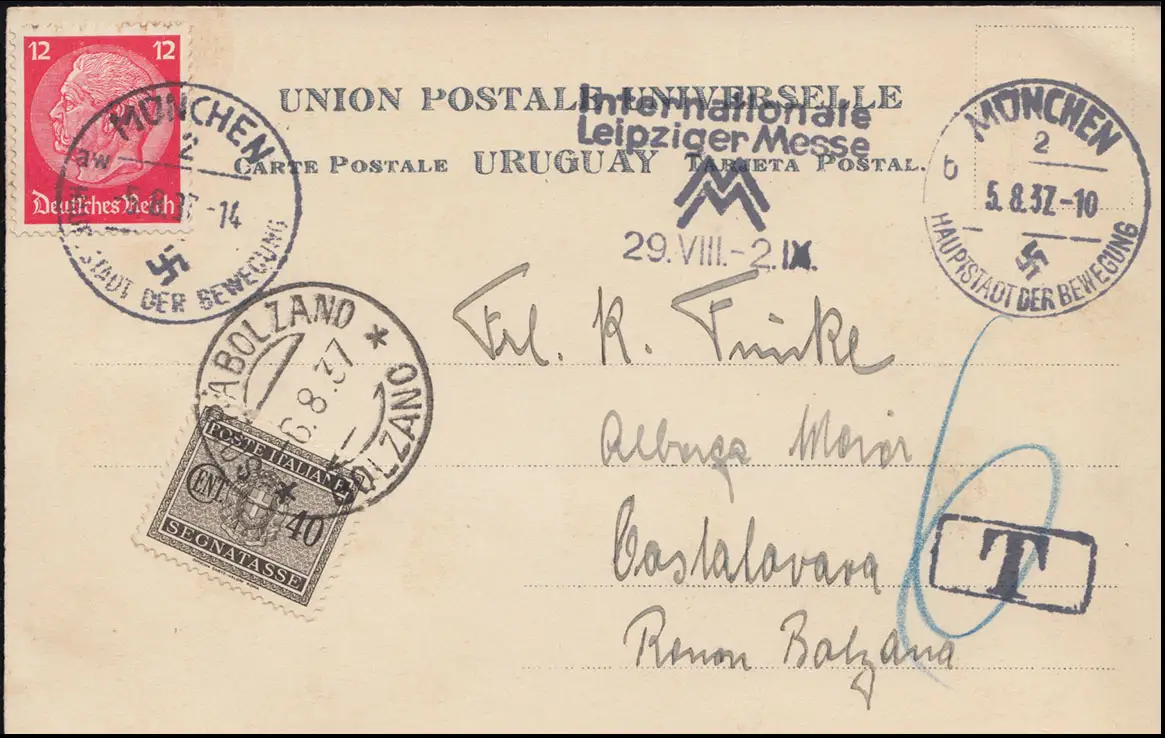 12 12
Deutsches Reich
MÜNCHEN
2
aw
5.8.37-14
HAUPTSTADT DER BEWEGUNG
UNION POSTALE UNIVERSELLE
CARTE POSTALE URUGUAY TARJETA POSTAL.
Internationale
Leipziger Messe
29.VIII.-2.IX.
MÜNCHEN
2
b
5.8.37-10
HAUPTSTADT DER BEWEGUNG
BOLZANO * BOLZANO
6.8.37
POSTE ITALIANE
CENT. 40
SEGNATASSE
Frl. K. Funke
Albergo Maior
Costalovara
Renon Bolzano
6
T